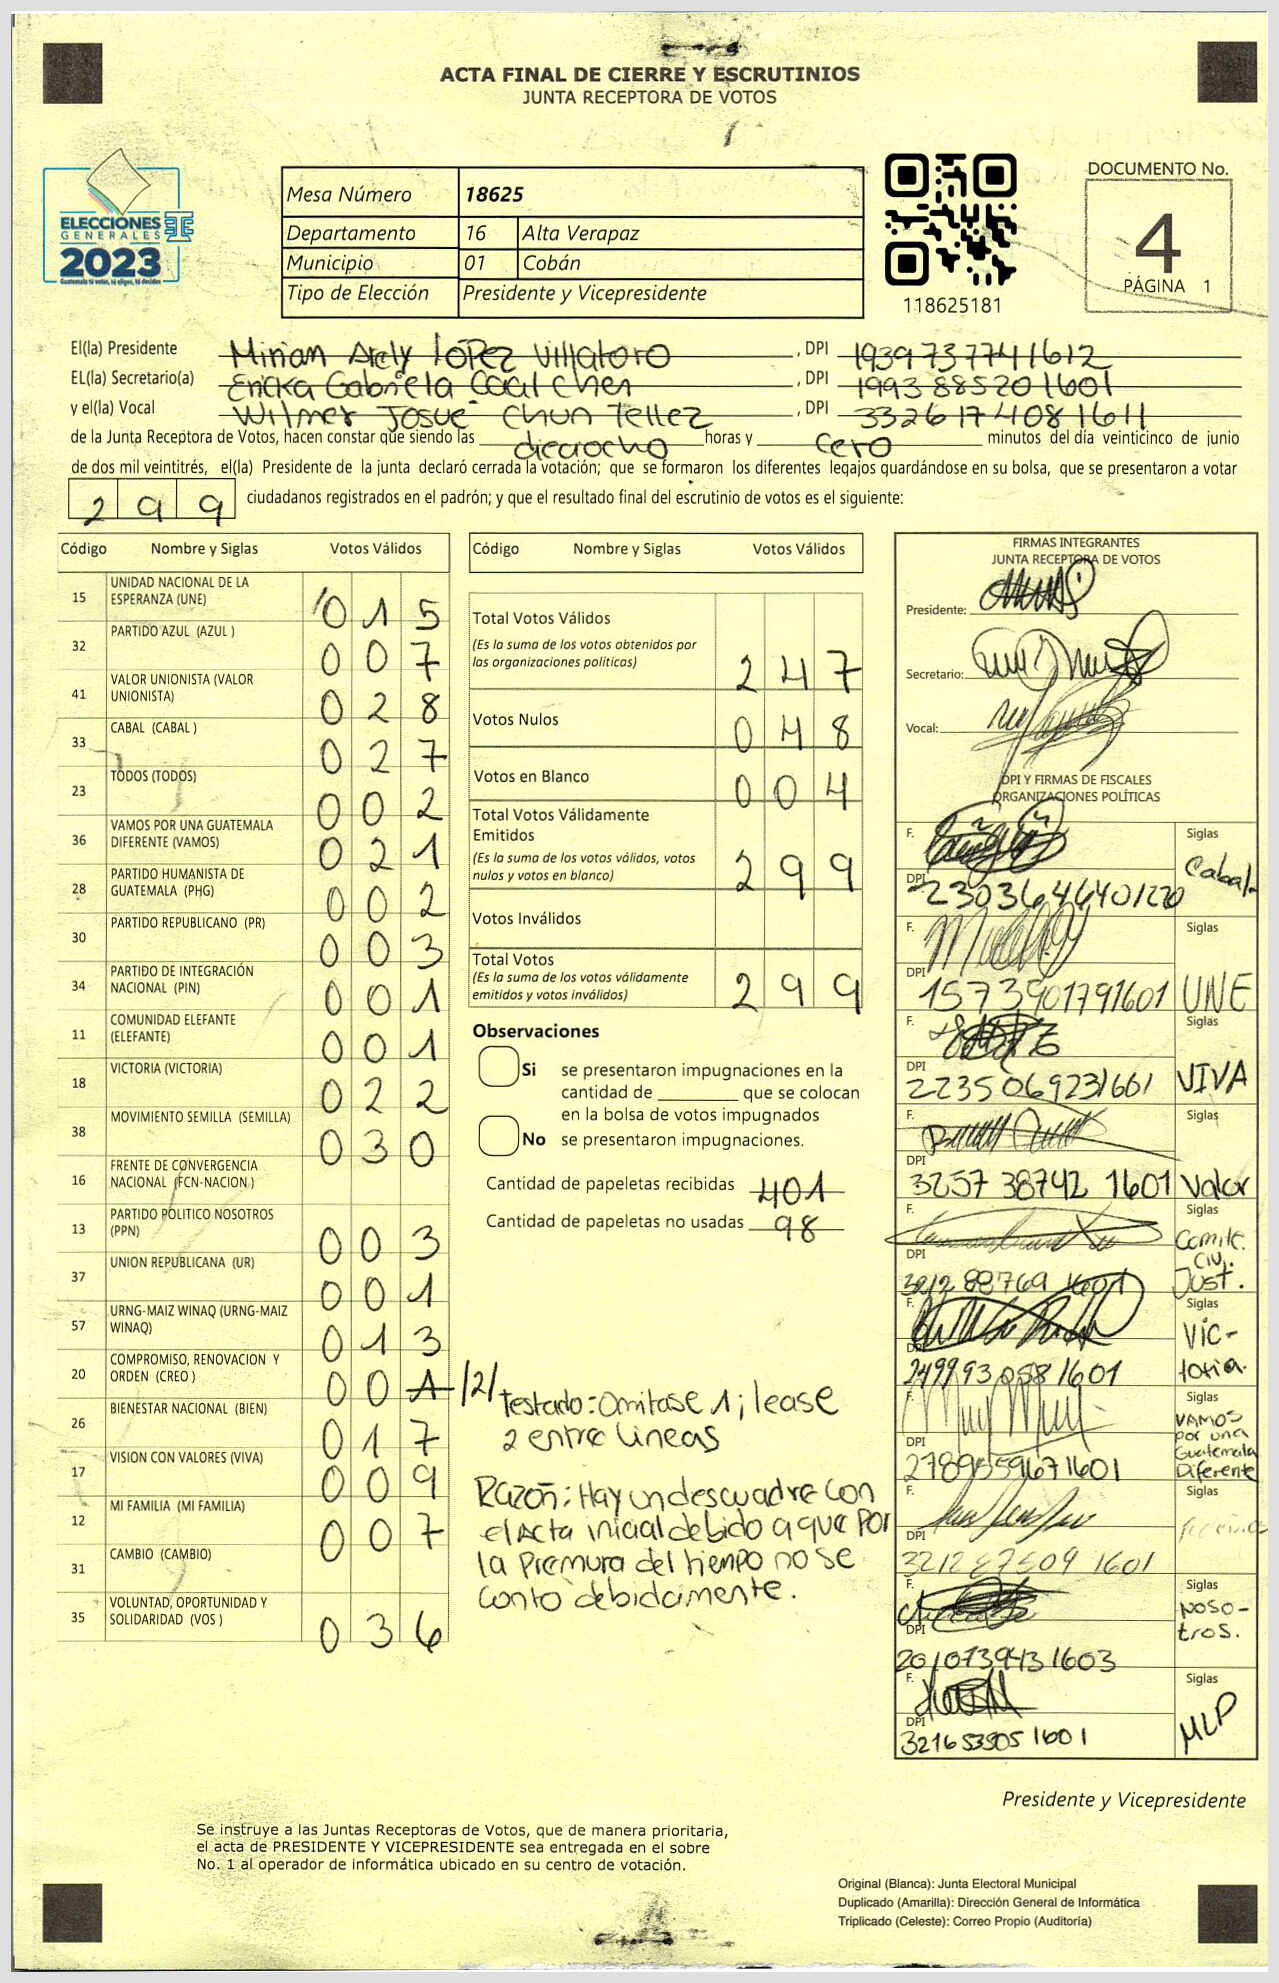 ACTA FINAL DE CIERRE Y ESCRUTINIOS
JUNTA RECEPTORA DE VOTOS
ELECCIONES
GENERALES
2023
Guatemala tú votas, tú eliges, tú decides
Mesa Número 18625
Departamento 16 Alta Verapaz
Municipio 01 Cobán
Tipo de Elección Presidente y Vicepresidente
118625181
DOCUMENTO No.
4
PÁGINA 1
El(la) Presidente Mirian Arely López Villatoro , DPI 1939737741612
EL(la) Secretario(a) Ericka Gabriela Caal Chen , DPI 1993885201601
y el(la) Vocal Wilmer Josue Chun Tellez , DPI 3326174081611
de la Junta Receptora de Votos, hacen constar que siendo las dieciocho horas y cero minutos del día veinticinco de junio
de dos mil veintitrés, el(la) Presidente de la junta declaró cerrada la votación; que se formaron los diferentes legajos guardándose en su bolsa, que se presentaron a votar
299 ciudadanos registrados en el padrón; y que el resultado final del escrutinio de votos es el siguiente:
Código Nombre y Siglas Votos Válidos
15 UNIDAD NACIONAL DE LA ESPERANZA (UNE) 015
32 PARTIDO AZUL (AZUL ) 007
41 VALOR UNIONISTA (VALOR UNIONISTA) 028
33 CABAL (CABAL ) 027
23 TODOS (TODOS) 002
36 VAMOS POR UNA GUATEMALA DIFERENTE (VAMOS) 021
28 PARTIDO HUMANISTA DE GUATEMALA (PHG) 002
30 PARTIDO REPUBLICANO (PR) 003
34 PARTIDO DE INTEGRACIÓN NACIONAL (PIN) 001
11 COMUNIDAD ELEFANTE (ELEFANTE) 001
18 VICTORIA (VICTORIA) 022
38 MOVIMIENTO SEMILLA (SEMILLA) 030
16 FRENTE DE CONVERGENCIA NACIONAL (FCN-NACION )
13 PARTIDO POLITICO NOSOTROS (PPN) 003
37 UNION REPUBLICANA (UR) 001
57 URNG-MAIZ WINAQ (URNG-MAIZ WINAQ) 013
20 COMPROMISO, RENOVACION Y ORDEN (CREO ) 001 /2/
26 BIENESTAR NACIONAL (BIEN) 017
17 VISION CON VALORES (VIVA) 009
12 MI FAMILIA (MI FAMILIA) 007
31 CAMBIO (CAMBIO)
35 VOLUNTAD, OPORTUNIDAD Y SOLIDARIDAD (VOS ) 036
Código Nombre y Siglas Votos Válidos
Total Votos Válidos
(Es la suma de los votos obtenidos por
las organizaciones políticas) 247
Votos Nulos 048
Votos en Blanco 004
Total Votos Válidamente
Emitidos
(Es la suma de los votos válidos, votos
nulos y votos en blanco) 299
Votos Inválidos
Total Votos
(Es la suma de los votos válidamente
emitidos y votos inválidos) 299
Observaciones
Si se presentaron impugnaciones en la
cantidad de ________ que se colocan
en la bolsa de votos impugnados
No se presentaron impugnaciones.
Cantidad de papeletas recibidas 401
Cantidad de papeletas no usadas 98
Testado: Omitase 1; lease
2 entre lineas
Razón: Hay un descuadre con
el Acta inicial debido a que por
la premura del tiempo no se
conto debidamente.
FIRMAS INTEGRANTES
JUNTA RECEPTORA DE VOTOS
Presidente:
Secretario:
Vocal:
DPI Y FIRMAS DE FISCALES
ORGANIZACIONES POLÍTICAS
F. Siglas
DPI 2303646401220 Cabal
F. Siglas
DPI 1573901791601 UNE
F. Siglas
DPI 2235069231601 VIVA
F. Siglas
DPI 3257 38742 1601 Valor
F. Siglas
DPI 3212 88769 1601 Comite. Civ. Just.
F. Siglas
DPI 2499930581601 Victoria.
F. Siglas
DPI 2789559671601 VAMOS por una Guatemala Diferente
F. Siglas
DPI 321287509 1601
F. Siglas
DPI 2010739431603 Nosotros.
F. Siglas
DPI 3216535051601 MLP
Presidente y Vicepresidente
Se instruye a las Juntas Receptoras de Votos, que de manera prioritaria,
el acta de PRESIDENTE Y VICEPRESIDENTE sea entregada en el sobre
No. 1 al operador de informática ubicado en su centro de votación.
Original (Blanca): Junta Electoral Municipal
Duplicado (Amarilla): Dirección General de Informática
Triplicado (Celeste): Correo Propio (Auditoría)